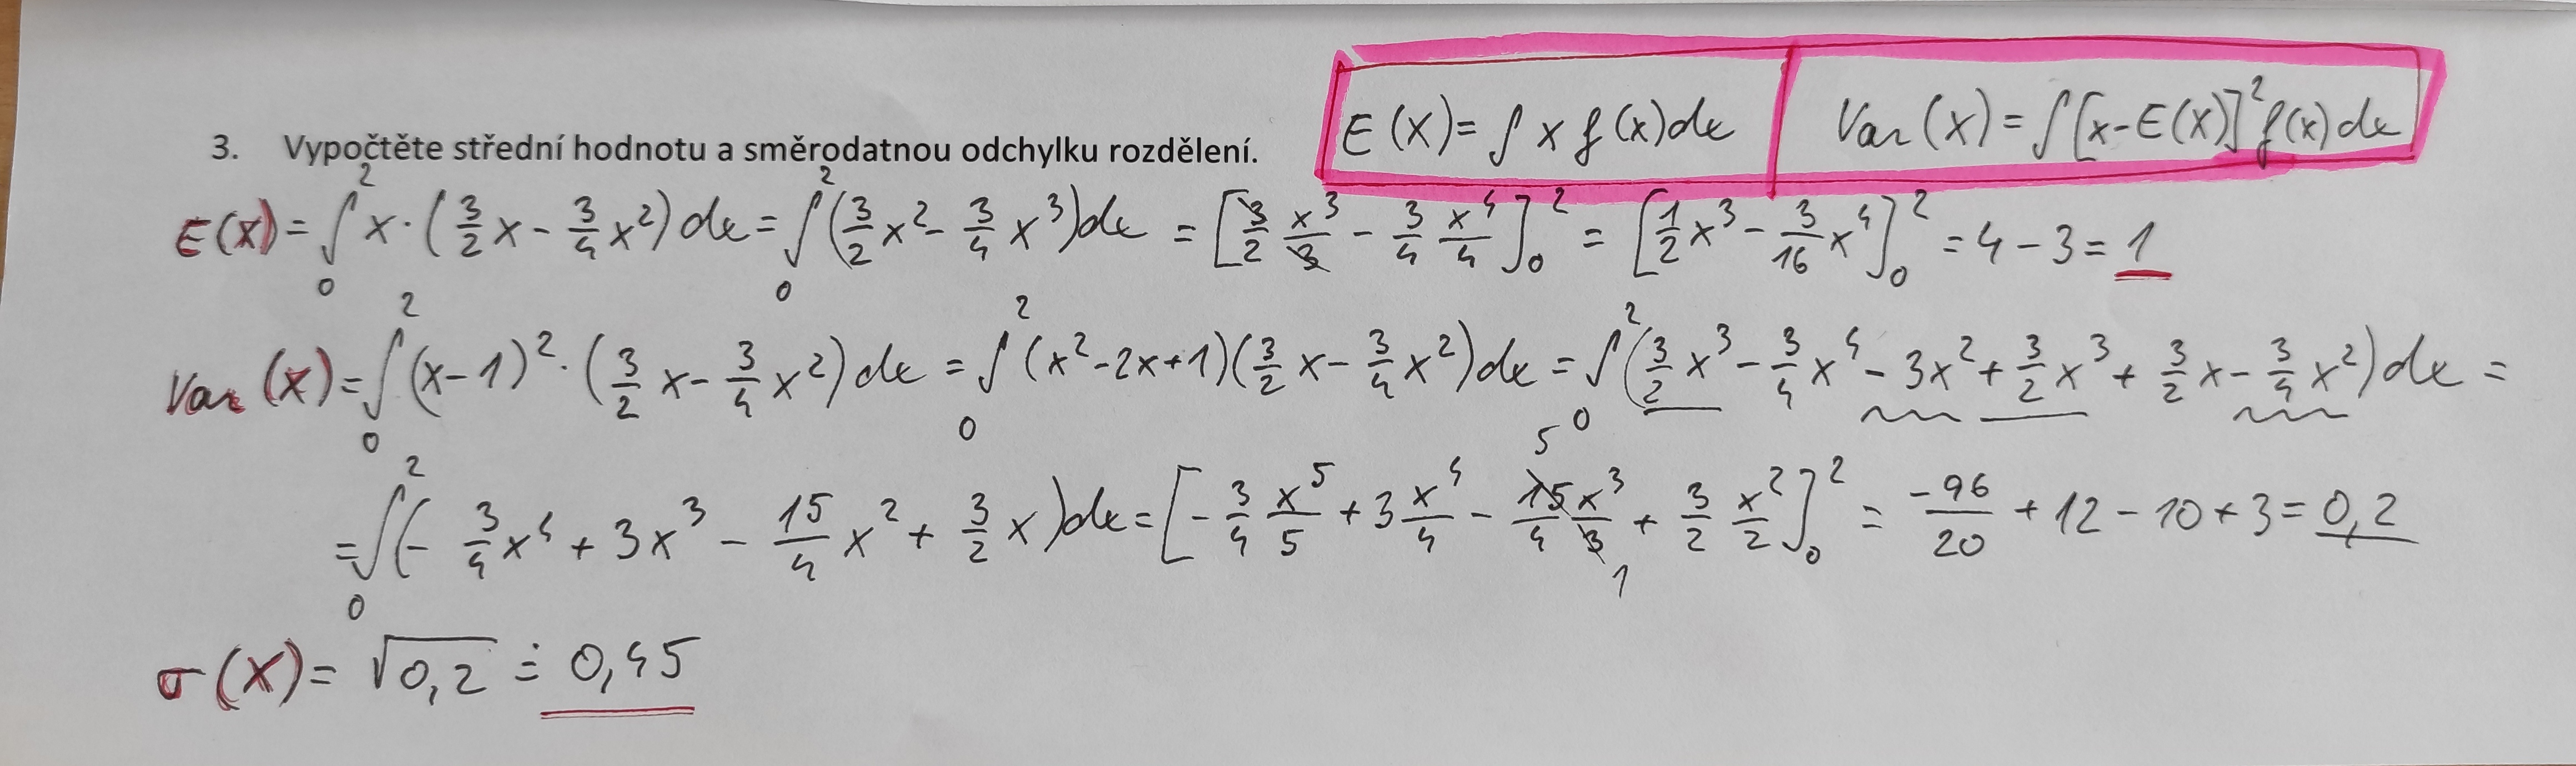 E(X) = ∫ x f(x) dx | Var(X) = ∫ [x-E(X)]² f(x) dx
3. Vypočtěte střední hodnotu a směrodatnou odchylku rozdělení.
E(X) = ∫₀² x · (3/2 x - 3/4 x²) dx = ∫₀² (3/2 x² - 3/4 x³) dx = [3/2 x³/3 - 3/4 x⁴/4]₀² = [1/2 x³ - 3/16 x⁴]₀² = 4 - 3 = 1
Var(X) = ∫₀² (x-1)² · (3/2 x - 3/4 x²) dx = ∫₀² (x² - 2x + 1)(3/2 x - 3/4 x²) dx = ∫₀² (3/2 x³ - 3/4 x⁴ - 3x² + 3/2 x³ + 3/2 x - 3/4 x²) dx =
= ∫₀² (- 3/4 x⁴ + 3x³ - 15/4 x² + 3/2 x) dx = [- 3/4 x⁵/5 + 3 x⁴/4 - 15/4 x³/3 + 3/2 x²/2]₀² = -96/20 + 12 - 10 + 3 = 0,2
σ(X) = √0,2 ≐ 0,45